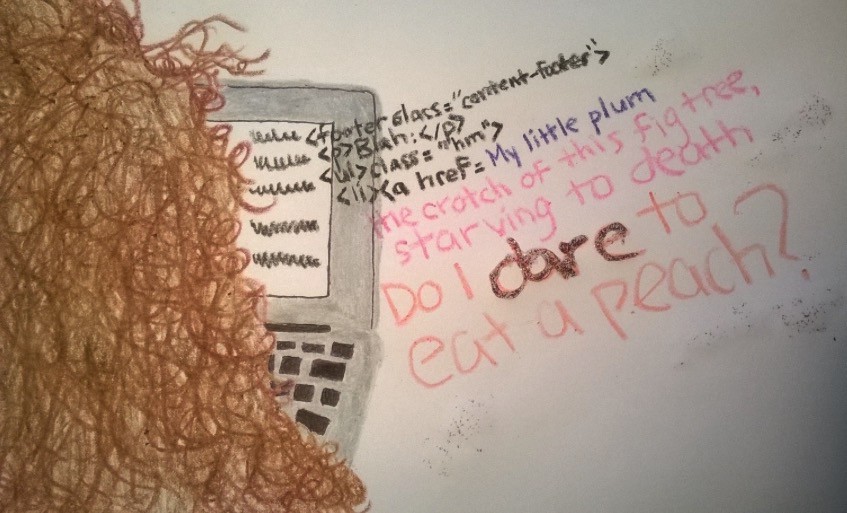 <footer class="content-footer">
<p>Blah:</p>
<ul>class="hm">
<li><a href=My little plum
the crotch of this fig tree,
starving to death
Do I dare to
eat a peach?